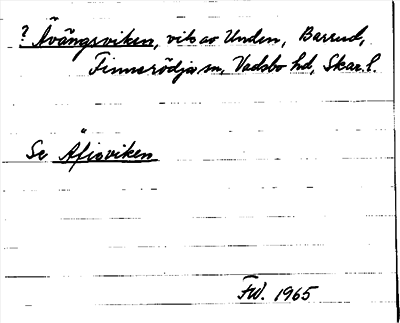 ? Åvängsviken, vik av Unden, Barrud,
Finnerödja sn, Vadsbo hd, Skar. l.
Se Åfioviken
FW. 1965